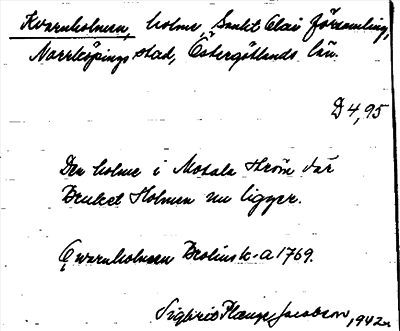 Kvarnholmen, holme, Sankt Olai församling,
Norrköpings stad, Östergötlands län.
D 4,95
Den holme i Motala ström där
Bruket Holmen nu ligger.
Qwarnholmen Brolins k-a 1769.
Sigbrit Plænge Jacobson, 1942.